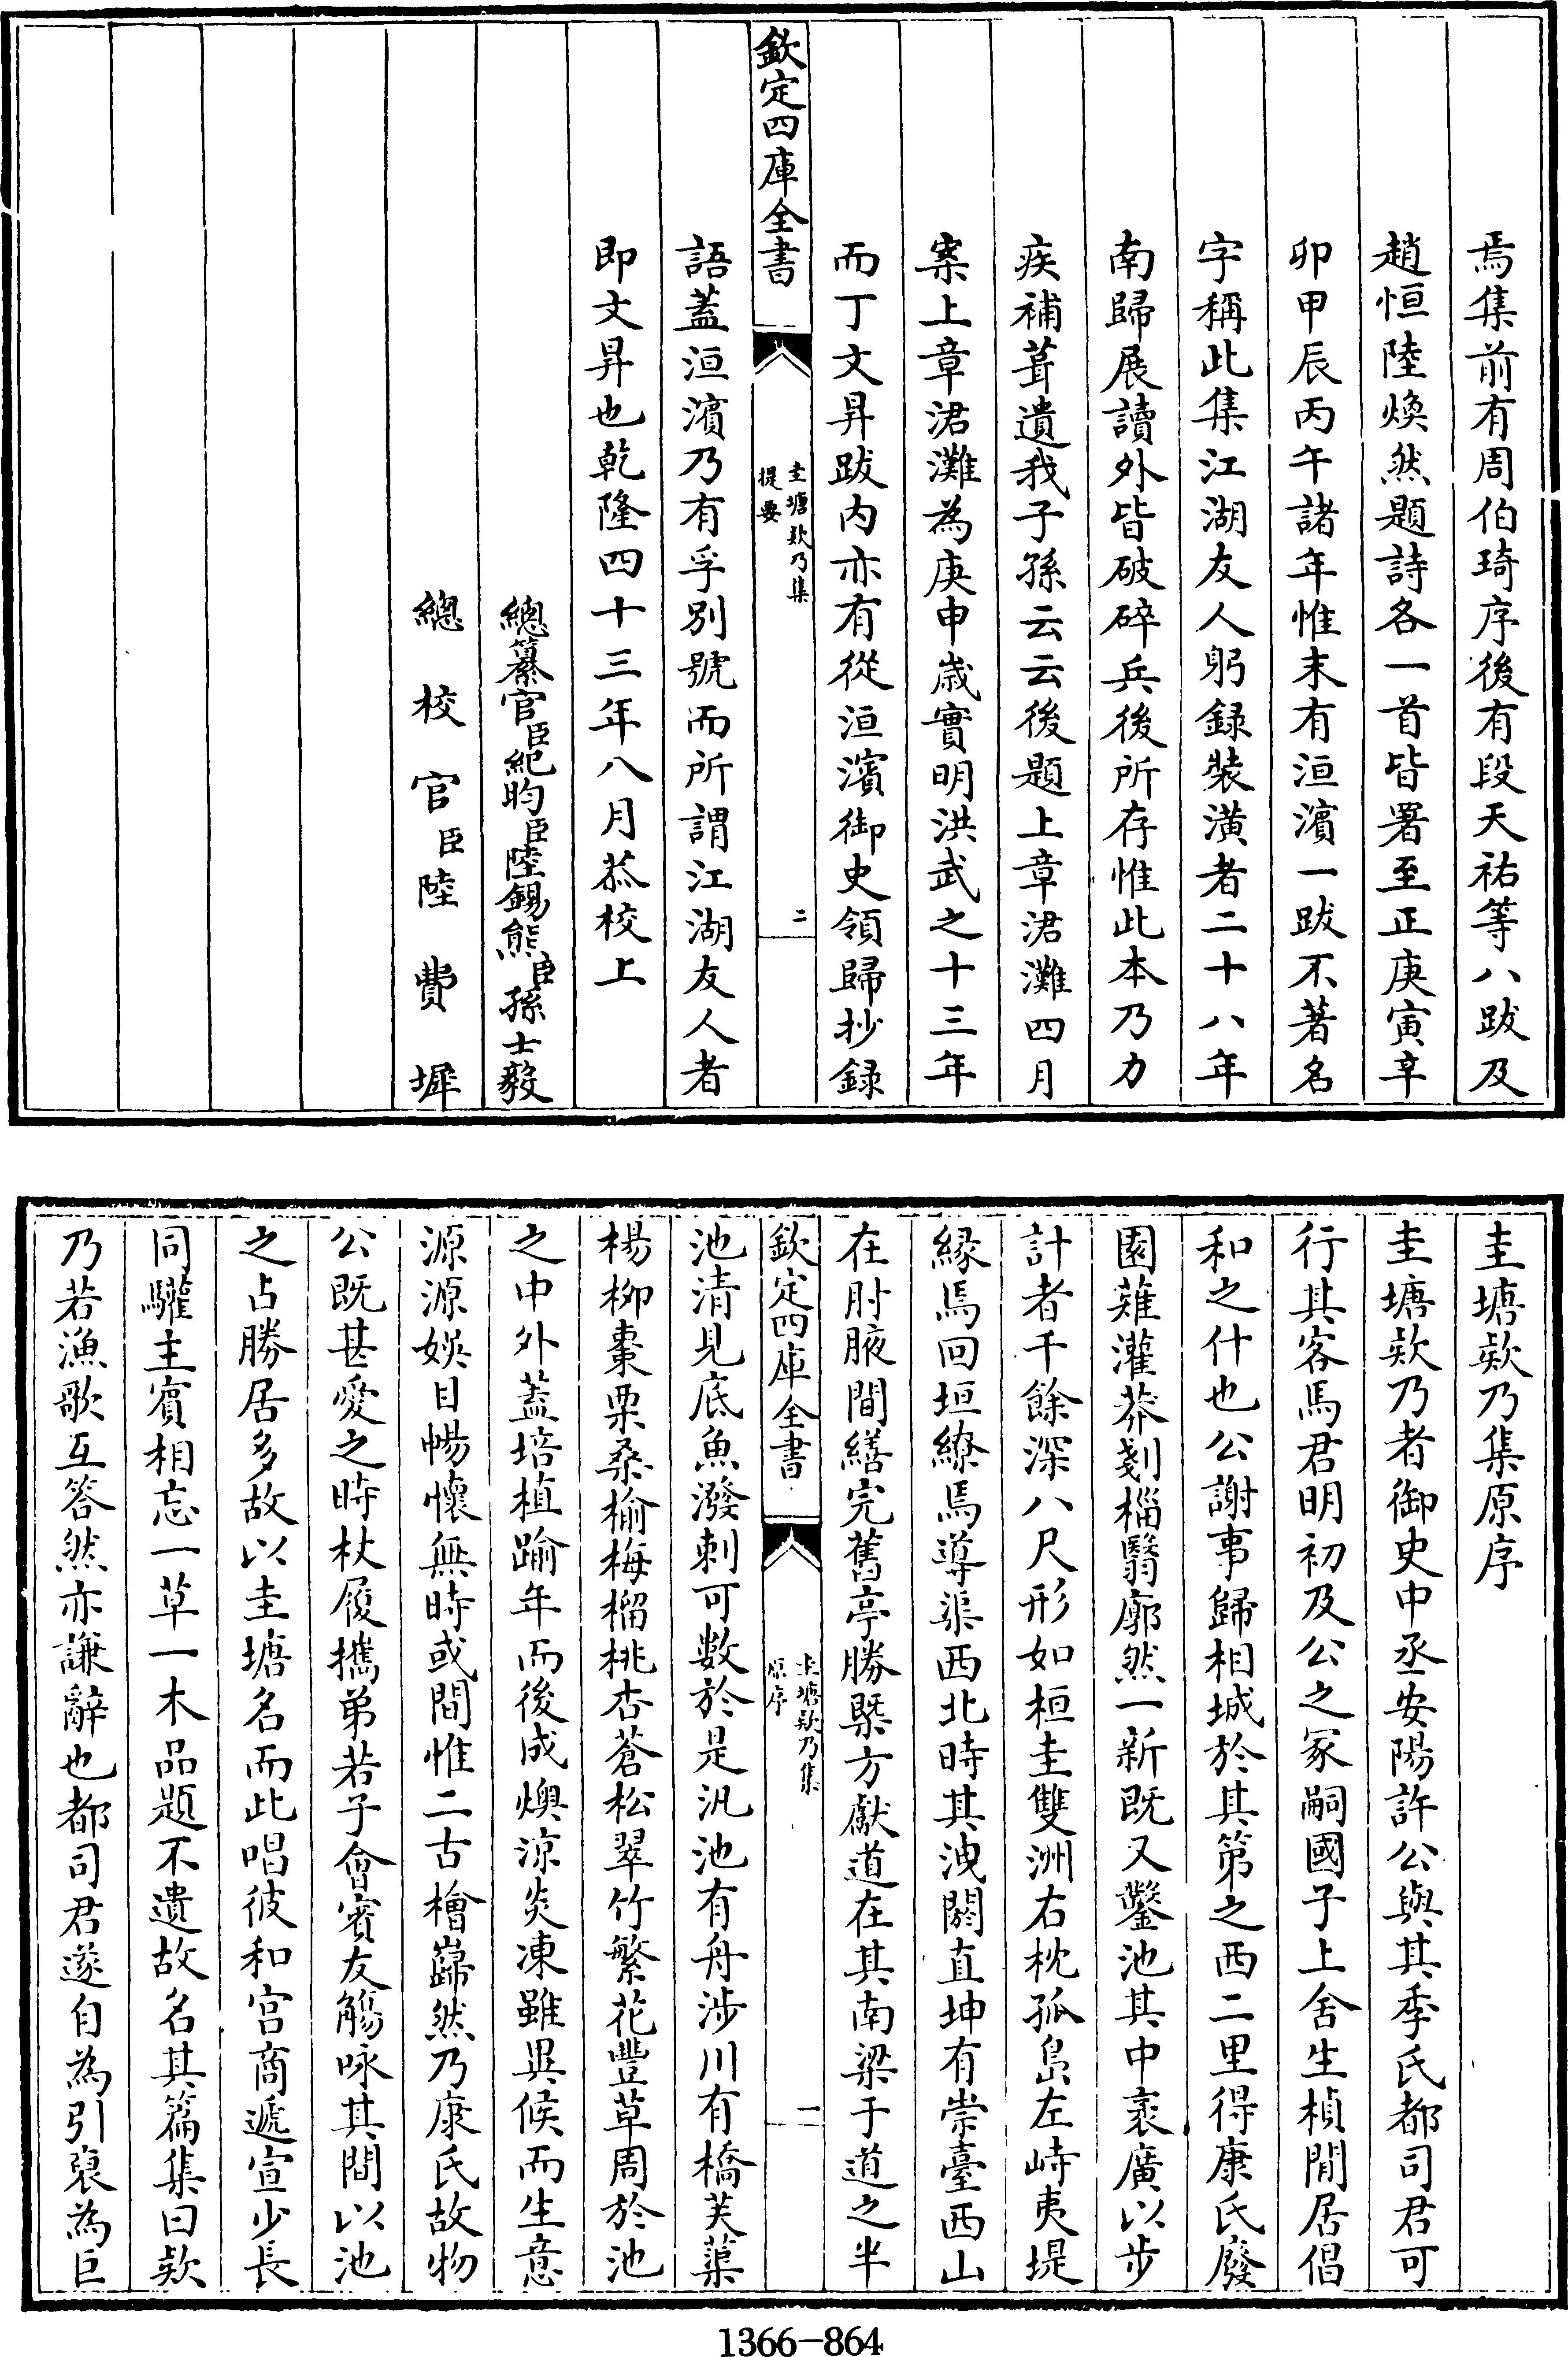 焉集前有周伯琦序後有段天祐等八跋及
趙恒陸煥然題詩各一首皆署至正庚寅辛
卯甲辰丙午諸年惟末有洹濱一跋不著名
字稱此集江湖友人躬録裝潢者二十八年
南歸展讀外皆破碎兵後所存惟此本乃力
疾補葺遺我子孫云云後題上章涒灘四月
案上章涒灘為庚申歲實明洪武之十三年
而丁文昇跋内亦有從洹濱御史領歸抄録
欽定四庫全書
圭塘欵乃集
提要
二
語蓋洹濱乃有孚別號而所謂江湖友人者
即文昇也乾隆四十三年八月恭校上
總纂官臣紀昀臣陸錫熊臣孫士毅
總校官臣陸費墀
圭塘欵乃集原序
圭塘欵乃者御史中丞安陽許公與其季氏都司君可
行其客馬君明初及公之冢嗣國子上舍生楨閒居倡
和之什也公謝事歸相城於其第之西二里得康氏廢
園薙灌莽剗榴翳廓然一新既又鑿池其中袤廣以步
計者千餘深八尺形如桓圭雙洲右枕孤島左峙夷堤
緣焉回垣繚焉導渠西北時其洩閼直坤有崇臺西山
在肘腋間繕完舊亭勝槩方獻道在其南梁于道之半
欽定四庫全書
圭塘欵乃集
原序
一
池清見底魚潑刺可數於是汎池有舟涉川有橋芙蕖
楊柳棗栗桑榆梅榴桃杏蒼松翠竹繁花豐草周於池
之中外蓋培植踰年而後成燠涼炎凍雖異候而生意
源源娛目暢懷無時或間惟二古檜巋然乃康氏故物
公既甚愛之時杖履攜弟若子會賓友觴咏其間以池
之占勝居多故以圭塘名而此唱彼和宫商遞宣少長
同驩主賓相忘一草一木品題不遺故名其篇集曰欵
乃若漁歌互答然亦謙辭也都司君遂自為引裒為巨
1366-864